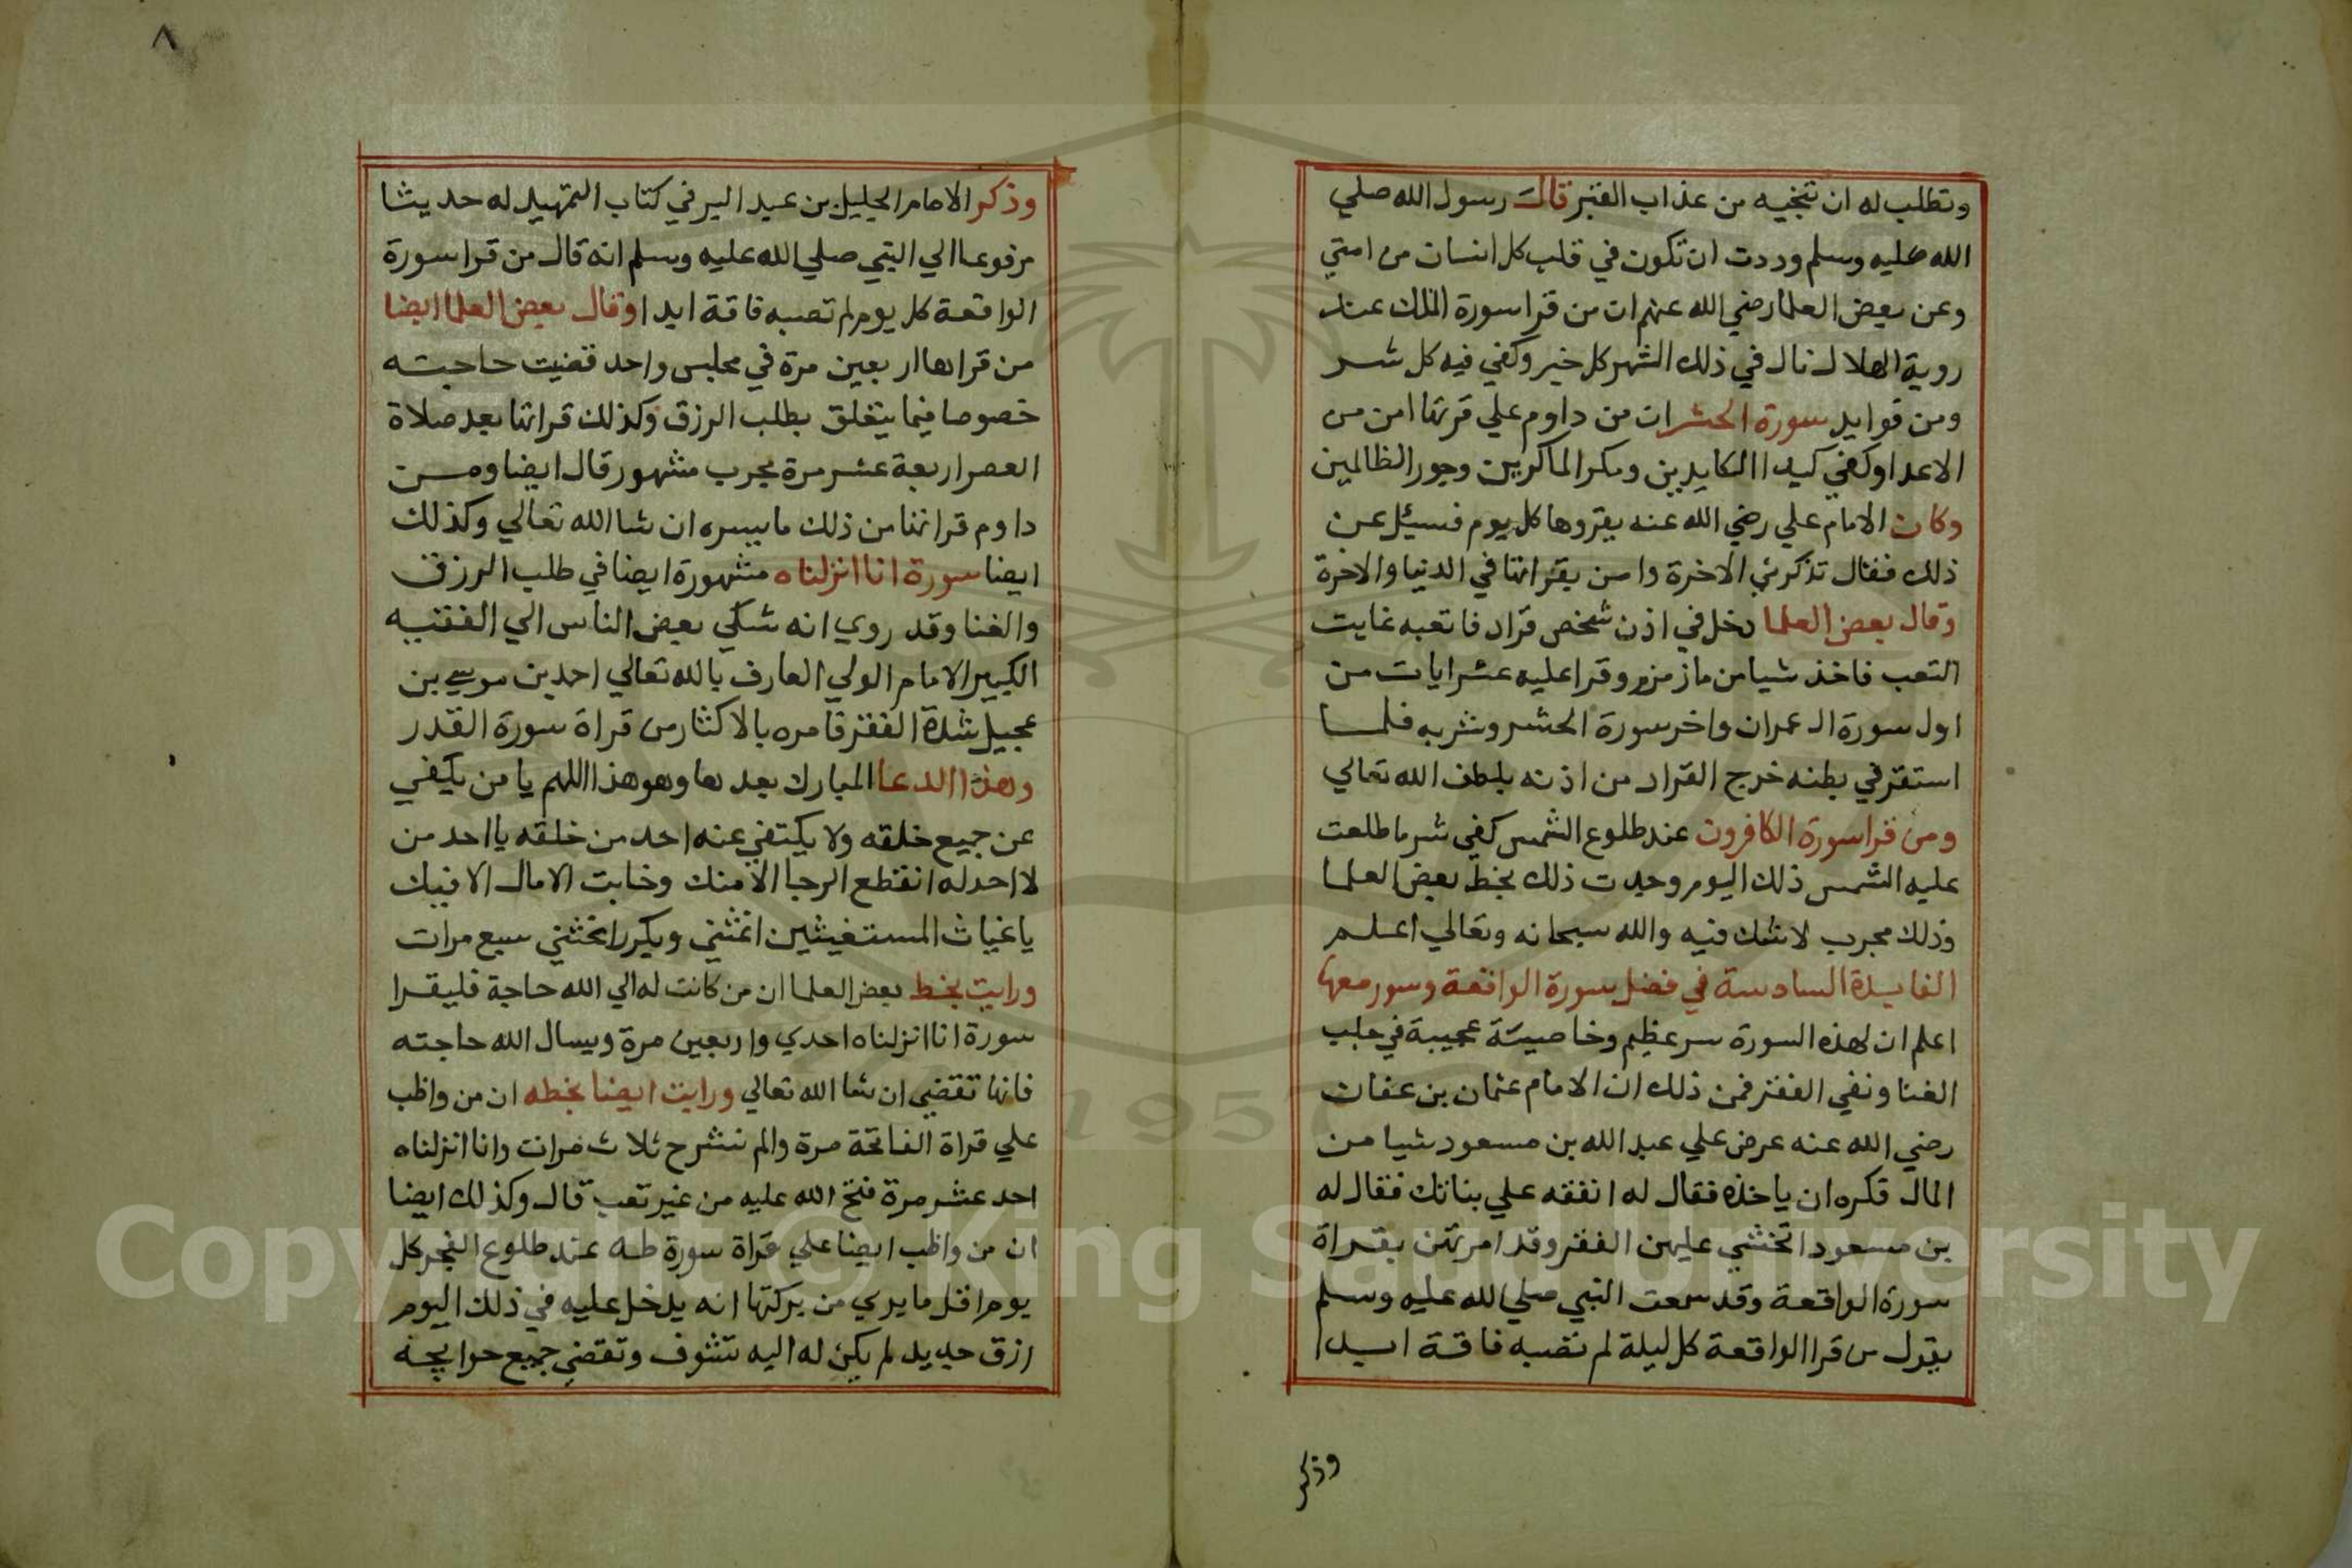 وتطلب له ان تنجيه من عذاب القبر قال رسول الله صلي
الله عليه وسلم وددت ان تكون في قلب كل انسان من امتي
وعن بعض العلما رضي الله عنهم ان من قرا سورة الملك عند
روية الهلال نال في ذلك الشهر كل خير وكفي فيه كل شر
ومن فوايد سورة الحشر ان من داوم علي قرتها امن من
الاعدا وكفي كيد الكايدين ومكر الماكرين وجور الظالمين
وكان الامام علي رضي الله عنه يقروها كل يوم فسيئل عن
ذلك فقال تذكرني الاخرة وامن بقراتها في الدنيا والاخرة
وقال بعض العلما دخل في اذن شخص قراد فاتعبه غايت
التعب فاخذ شيا من ما زمزم وقرا عليه عشر ايات من
اول سورة ال عمران واخر سورة الحشر وشربه فلما
استقر في بطنه خرج القراد من اذنه بلطف الله تعالي
ومن قرا سورة الكافرون عند طلوع الشمس كفي شر ما طلعت
عليه الشمس ذلك اليوم وجدت ذلك بخط بعض العلما
وذلك مجرب لا شك فيه والله سبحانه وتعالي اعلم
الفايدة السادسة في فضل سورة الواقعة وسور معها
اعلم ان لهذه السورة سر عظيم وخاصيتة عجيبة في جلب
الغنا ونفي الفقر فمن ذلك ان الامام عثمان بن عفان
رضي الله عنه عرض علي عبد الله بن مسعود شيا من
المال فكره ان ياخذه فقال له انفقه علي بناتك فقال له
بن مسعود اتخشي عليهن الفقر وقد امرتهن بقراة
سورة الواقعة وقد سمعت النبي صلي الله عليه وسلم
يقول من قرا الواقعة كل ليلة لم تصبه فاقة ابدا
وذكر
٨
وذكر الامام الجليل بن عبد البر في كتاب التمهيد له حديثا
مرفوعا الي النبي صلي الله عليه وسلم انه قال من قرا سورة
الواقعة كل يوم لم تصبه فاقة ابدا وقال بعض العلما ايضا
من قراها اربعين مرة في مجلس واحد قضيت حاجته
خصوصا فيما يتعلق بطلب الرزق وكذلك قراتها بعد صلاة
العصر اربعة عشر مرة مجرب مشهور قال ايضا ومن
داوم قراتها من ذلك ما ييسره ان شا الله تعالي وكذلك
ايضا سورة انا انزلناه مشهورة ايضا في طلب الرزق
والغنا وقد روي انه شكي بعض الناس الي الفقيه
الكبير الامام الولي العارف بالله تعالي احمد بن موسي بن
عجيل شدة الفقر فامره بالاكثار من قراة سورة القدر
وهذا الدعا المبارك بعدها وهو هذا اللهم يا من يكفي
عن جميع خلقه ولا يكتفي عنه احد من خلقه يا احد من
لا احد له انقطع الرجا الا منك وخابت الامال الا فيك
يا غياث المستغيثين اغثني ويكرر اغثني سبع مرات
ورايت بخط بعض العلما ان من كانت له الي الله حاجة فليقرا
سورة انا انزلناه احدي واربعين مرة ويسال الله حاجته
فانها تقضي ان شا الله تعالي ورايت ايضا بخطه ان من واظب
علي قراة الفاتحة مرة والم نشرح ثلاث مرات وانا انزلناه
احد عشر مرة فتح الله عليه من غير تعب قال وكذلك ايضا
ان من واظب ايضا علي قراة سورة طه عند طلوع الفجر كل
يوم اقل ما يري من بركتها انه يدخل عليه في ذلك اليوم
رزق جديد لم يكن له اليه تشوف وتقضي جميع حوايجه
Copyright © King Saud University
1957